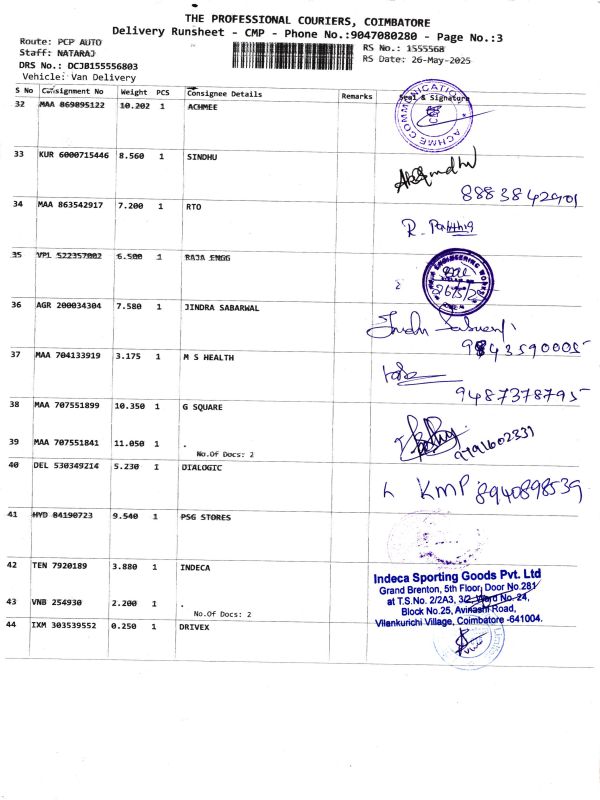 THE PROFESSIONAL COURIERS, COIMBATORE
Delivery Runsheet - CMP - Phone No.:9047080280 - Page No.:3
Route: PCP AUTO
Staff: NATARAJ
DRS No.: DCJB155556803
Vehicle: Van Delivery
RS No.: 1555568
RS Date: 26-May-2025
S No Consignment No Weight PCS Consignee Details Remarks Seal & Signature
32 MAA 869895122 10.202 1 ACHMEE
33 KUR 6000715446 8.560 1 SINDHU
8883842901
34 MAA 863542917 7.200 1 RTO
35 VPL 522357002 6.500 1 RAJA ENGG
36 AGR 200034304 7.580 1 JINDRA SABARWAL
9843590005
37 MAA 704133919 3.175 1 M S HEALTH
9487378795
38 MAA 707551899 10.350 1 G SQUARE
39 MAA 707551841 11.050 1 .
No.Of Docs: 2
9791602331
40 DEL 530349214 5.230 1 DIALOGIC
KMP 8940898539
41 HYD 84190723 9.540 1 PSG STORES
42 TEN 7920189 3.880 1 INDECA
Indeca Sporting Goods Pvt. Ltd
Grand Brenton, 5th Floor, Door No 281
at T.S.No. 2/2A3, 3/2, Ward No. 24,
Block No.25, Avinashi Road,
Vilankurichi Village, Coimbatore -641004.
43 VNB 254930 2.200 1 .
No.Of Docs: 2
44 IXM 303539552 0.250 1 DRIVEX